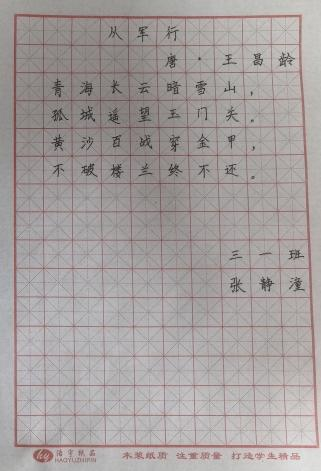 从军行
唐·王昌龄
青海长云暗雪山，
孤城遥望玉门关。
黄沙百战穿金甲，
不破楼兰终不还。
三一班
张静潼
浩宇纸品
HAOYUZHIPIN
木浆纸质 注重质量 打造学生精品